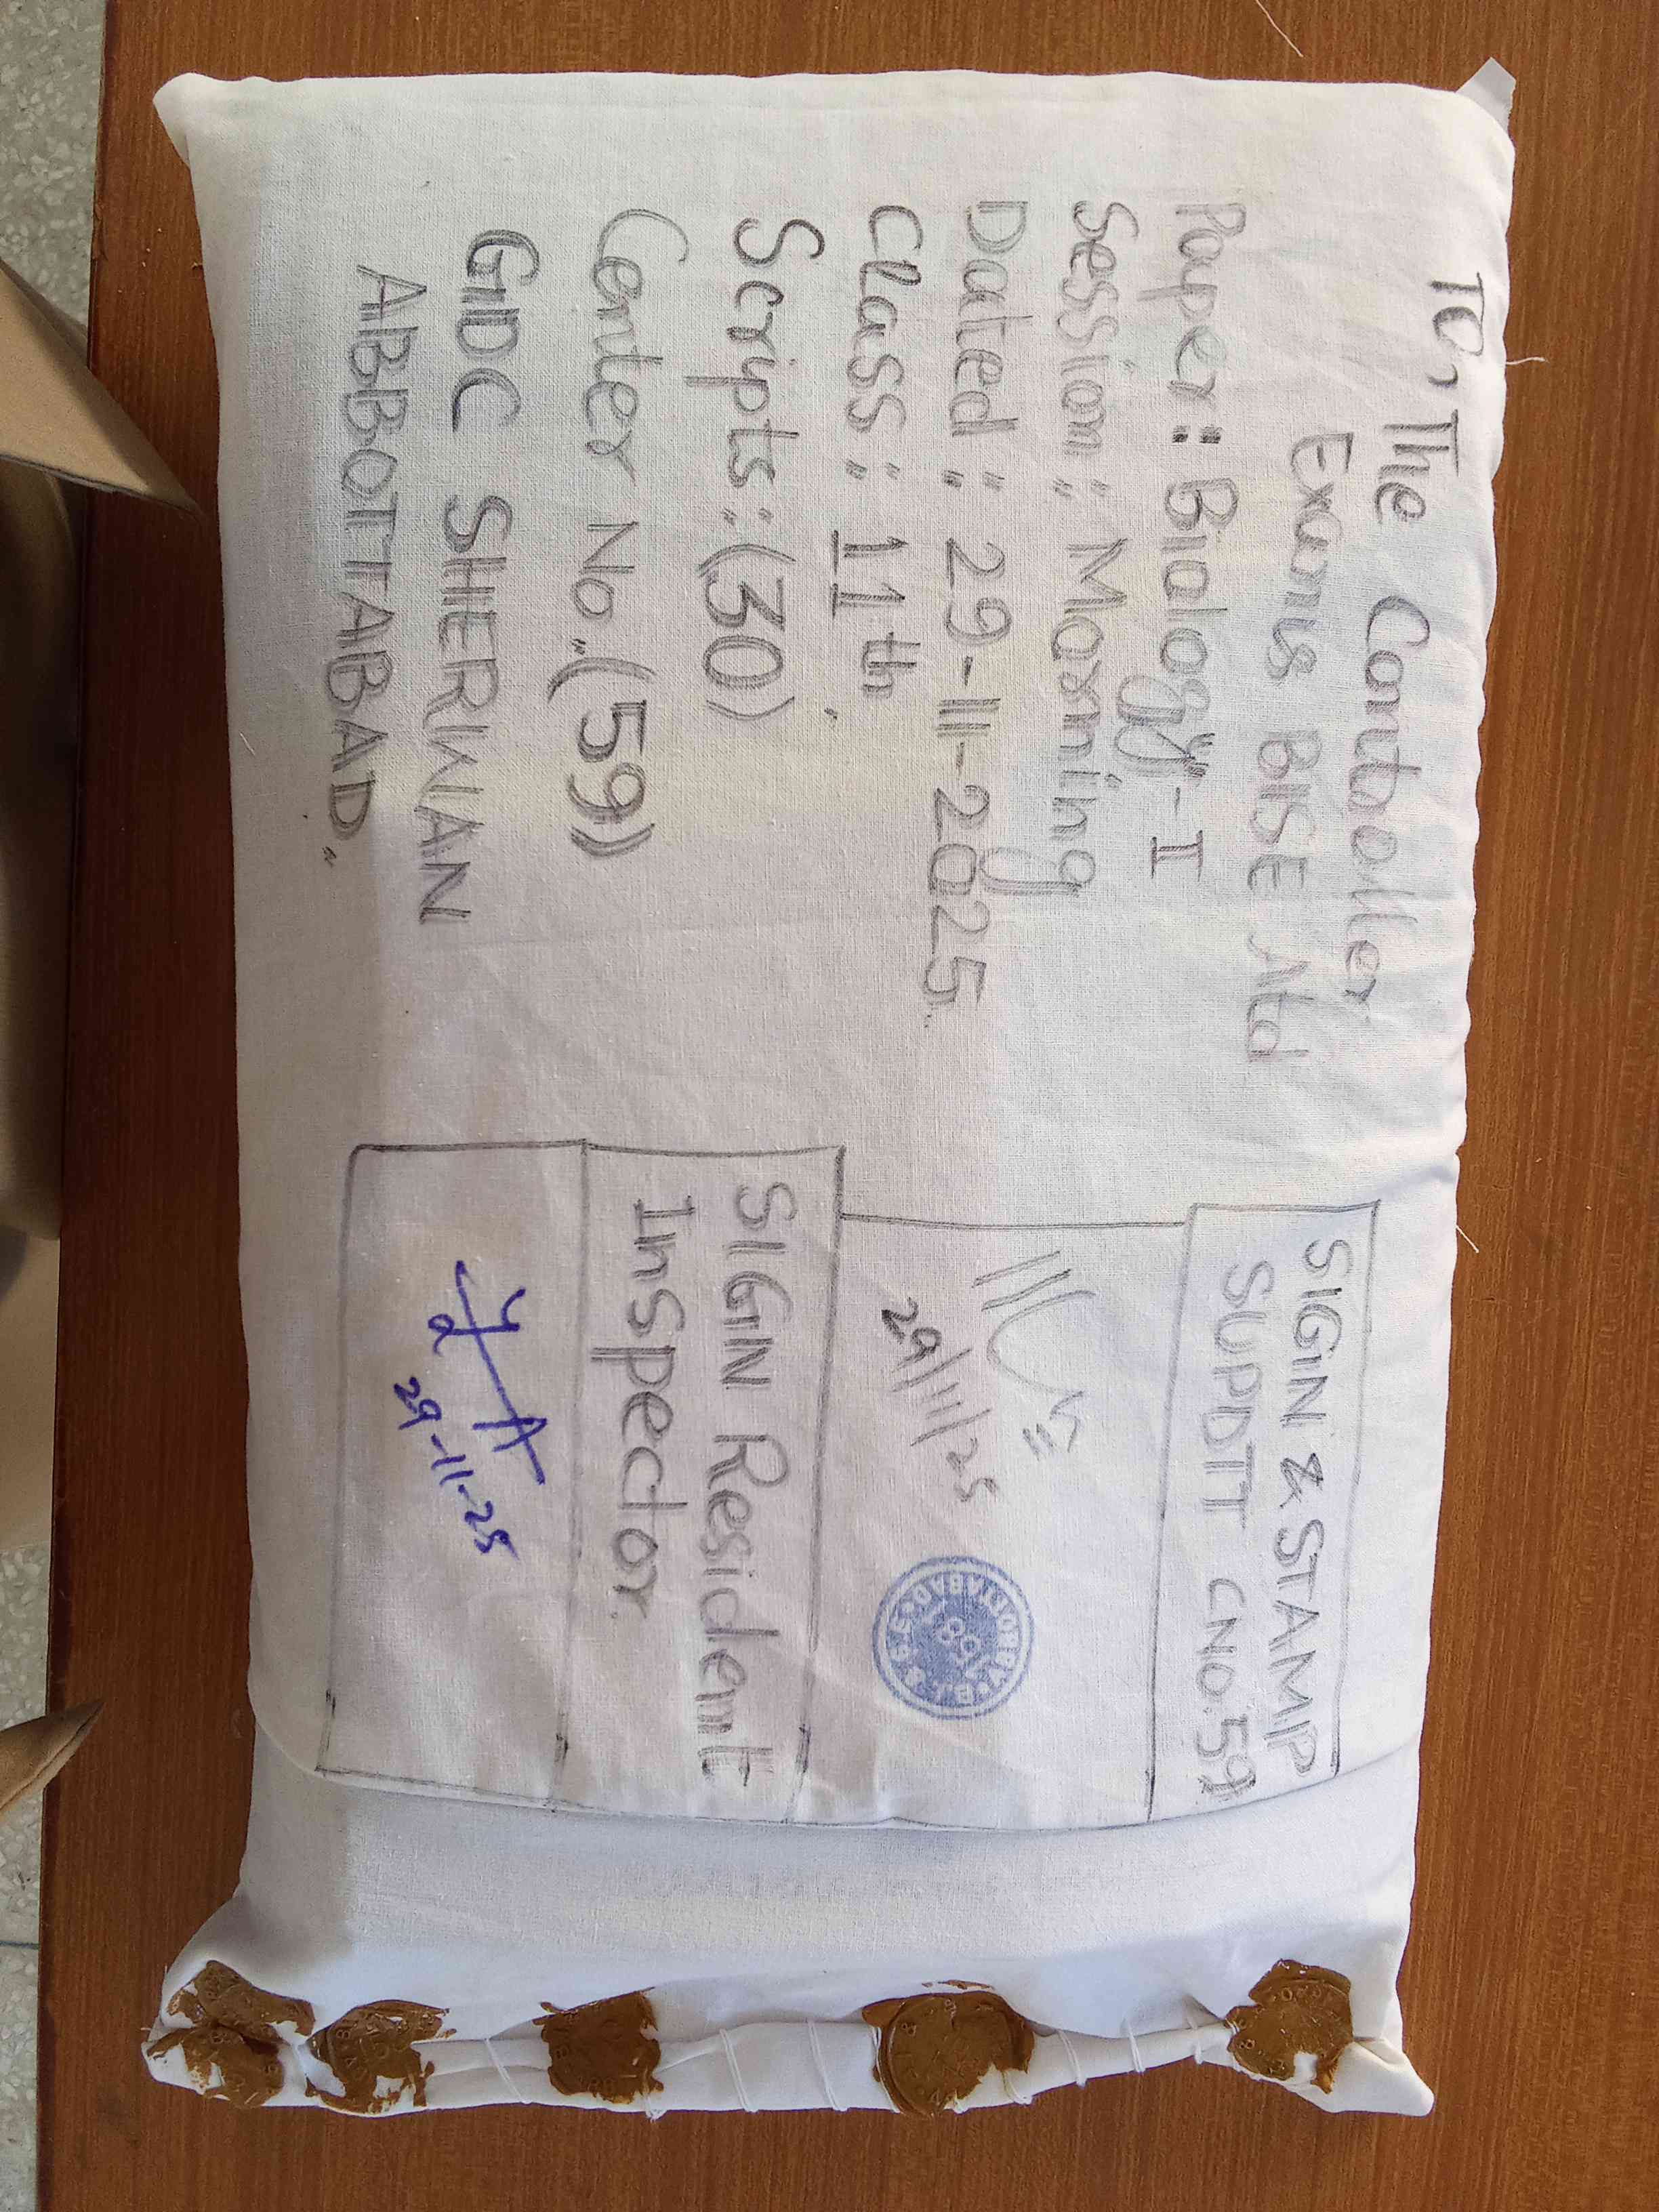 TO, The Controller
Exams BISE Atd
Paper: Biology-I
Session: Morning
Dated: 29-III-2025
Class: 11th
Scripts: (30)
Center No. (59)
GDC SHERWAN
ABBOTTABAD.
SIGN & STAMP
SUPDTT CNO.59
29/11/25
SIGN Resident
Inspector.
29-11-25